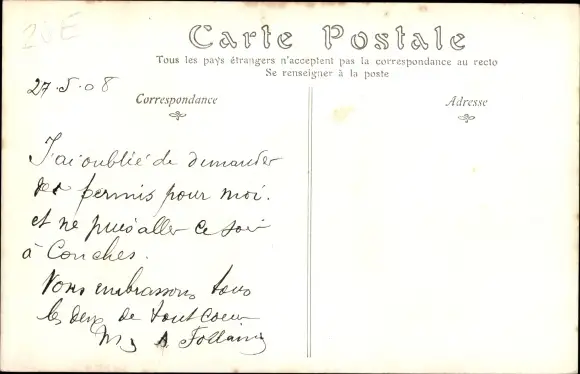 20E
Carte Postale
Tous les pays étrangers n'acceptent pas la correspondance au recto
Se renseigner à la poste
27.5.08
Correspondance
Adresse
J'ai oublié de demander
des permis pour moi.
et ne puis aller ce soir
à Conches.
Vous embrassons tous
les deux de tout coeur